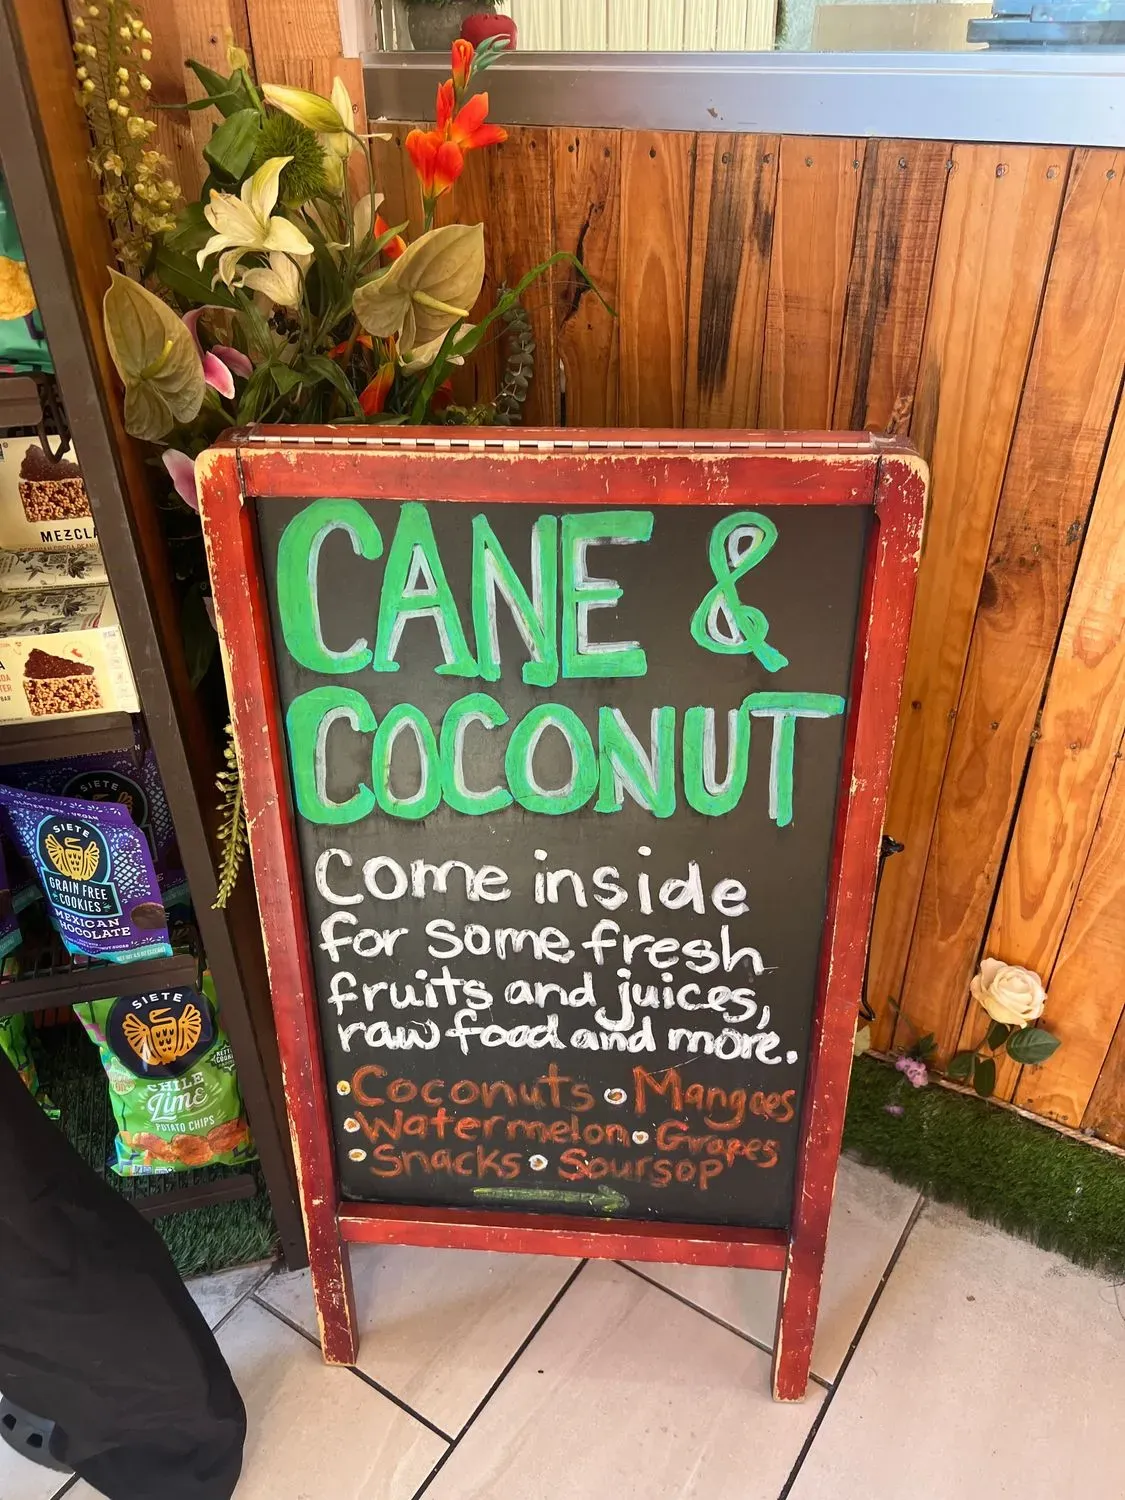 CANE &
COCONUT
Come inside
for some fresh
fruits and juices,
raw food and more.
• Coconuts • Mangoes
• Watermelon • Grapes
• Snacks • Soursop
MEZCLA
SIETE
SIETE
GRAIN FREE
COOKIES
MEXICAN
CHOCOLATE
SIETE
CHILE
Lime
POTATO CHIPS